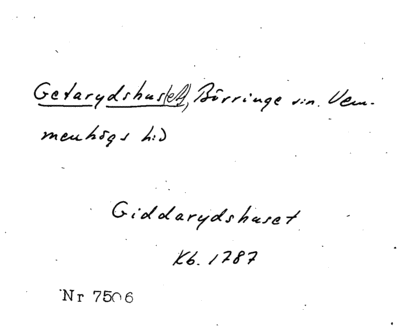 Getarydshus(et), Börringe sn. Vem-
menhögs hd
Giddarydshuset
Kb. 1787
Nr 7506